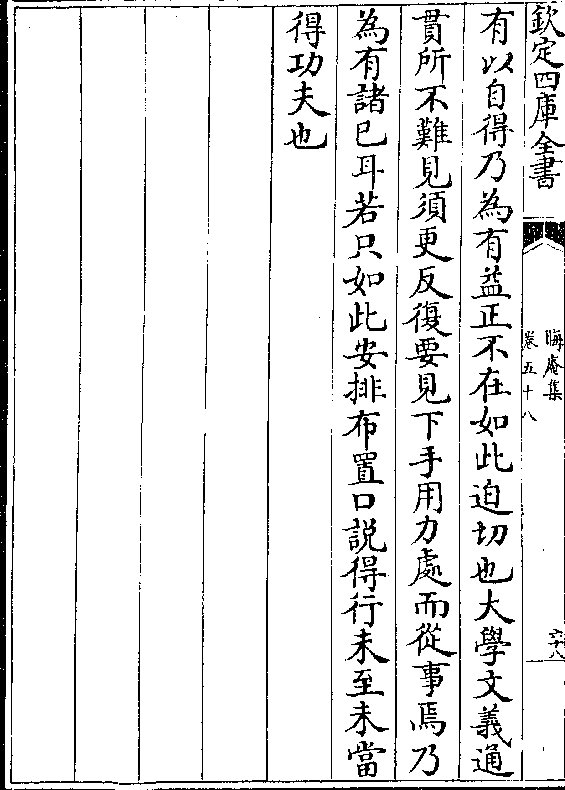 欽定四庫全書
晦庵集
卷五十八
六十八
有以自得乃為有益正不在如此迫切也大學文義通
貫所不難見須更反復要見下手用力處而從事焉乃
為有諸已耳若只如此安排布置口説得行未至未當
得功夫也